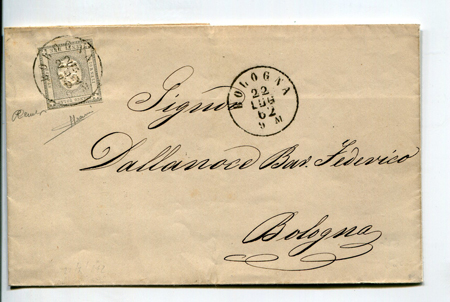 BOLOGNA
22
LUG
62
9 M
Signor
Dallanoce Bar. Federico
Bologna